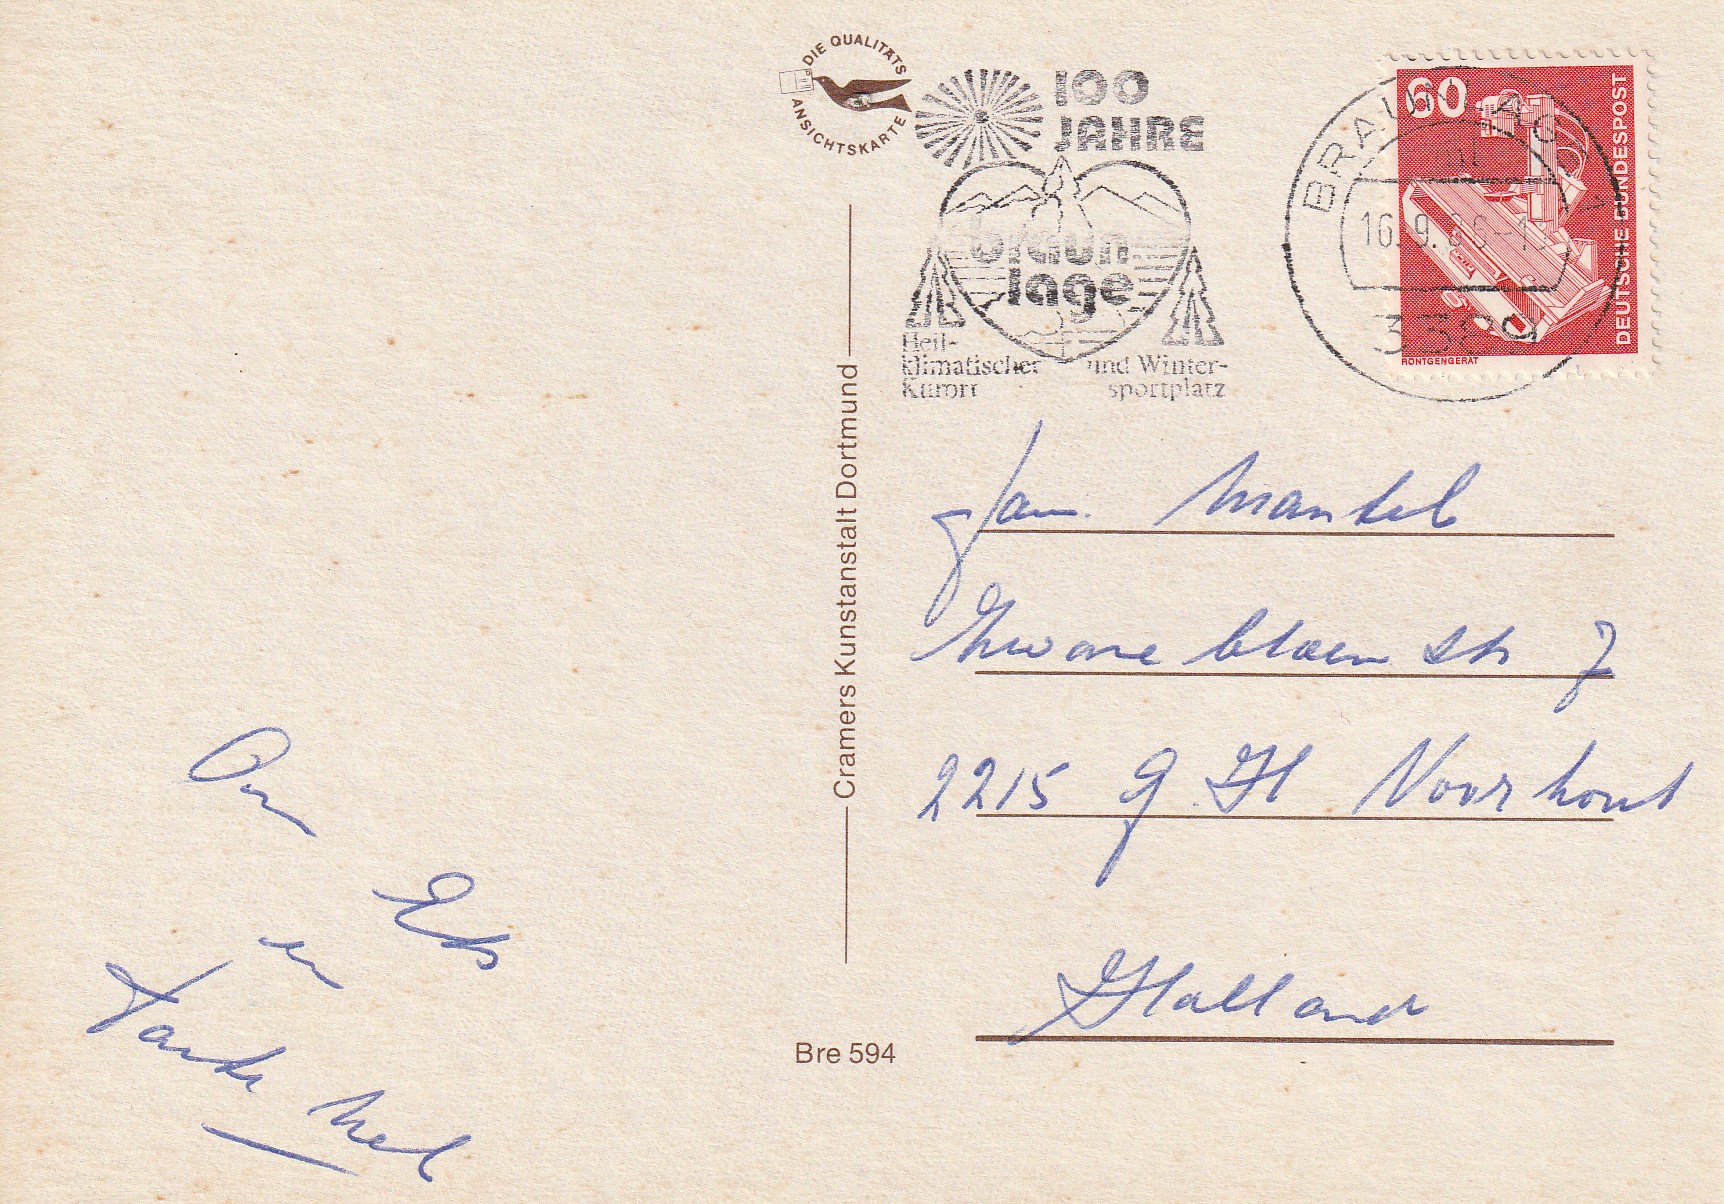 DIE QUALITÄTS
ANSICHTSKARTE
100
JAHRE
braun-
lage
Heil-
klimatischer und Winter-
Kurort sportplatz
BRAUNLAGE 1
16.9.86-1
3389
60
DEUTSCHE BUNDESPOST
RÖNTGENGERÄT
Cramers Kunstanstalt Dortmund
Fam. Mantel
2215 Voorhout
Holland
Bre 594
en
Tante